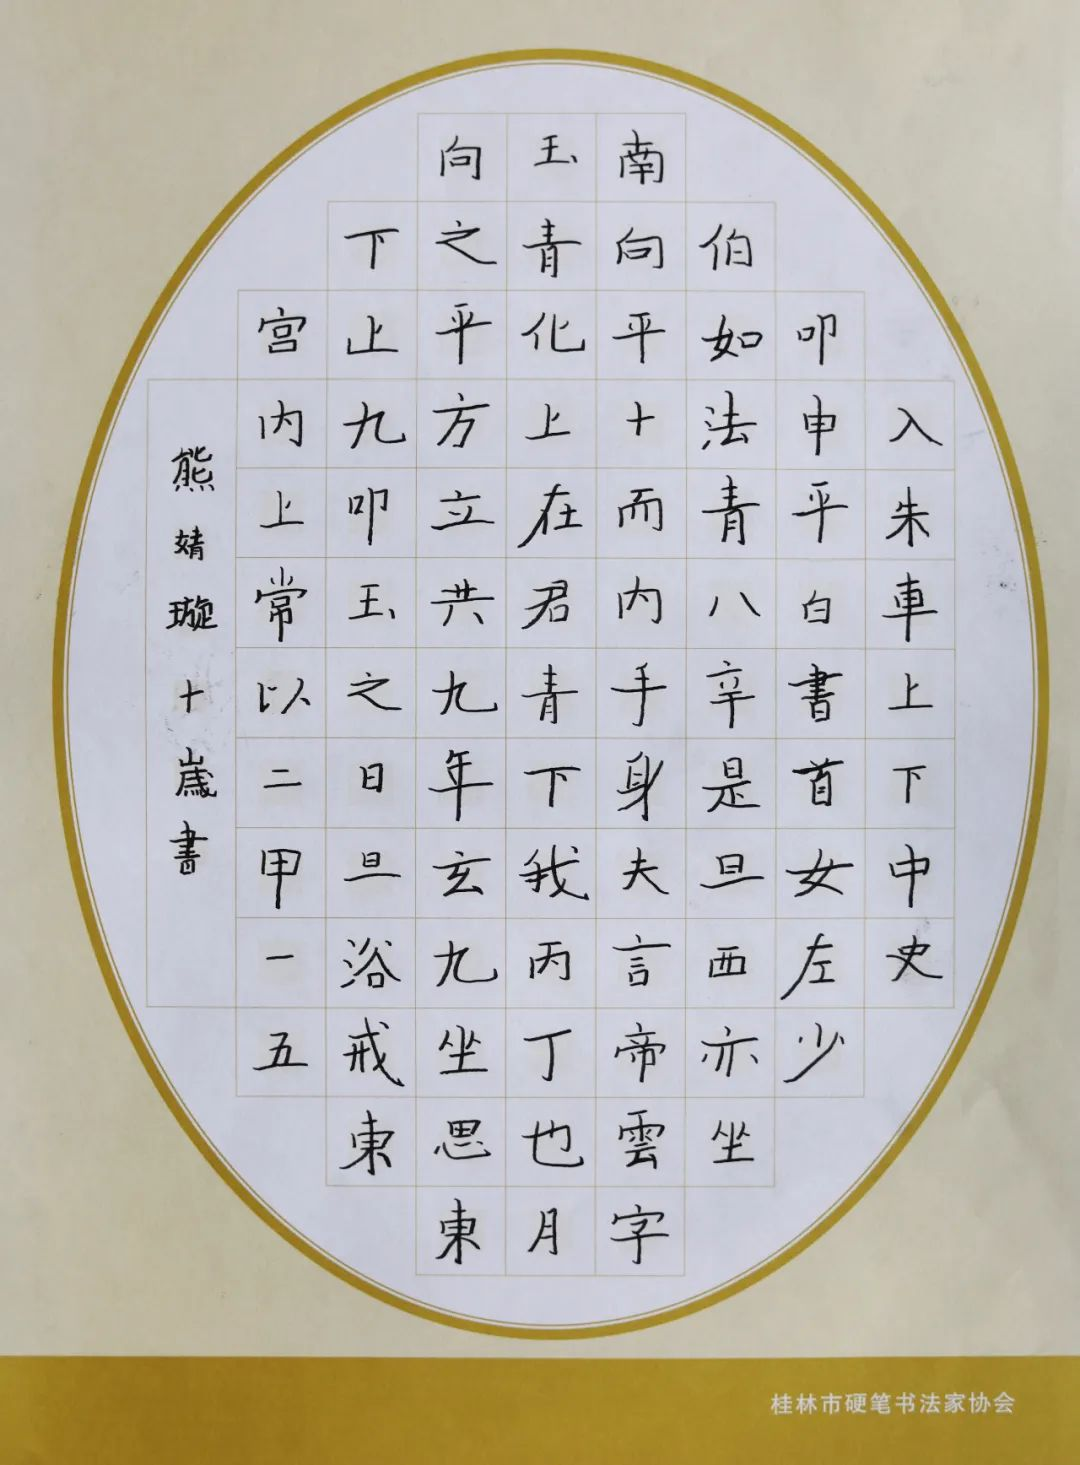 入朱車上下中史
叩申平白書首女左少
伯如法青八辛是旦西亦坐
南向平十而内手身夫言帝雲字
玉青化上在君青下我丙丁也月
向之平方立共九年玄九坐思東
下止九叩玉之日旦浴戒東
宫内上常以二甲一五
熊婧璇十歳書
桂林市硬笔书法家协会